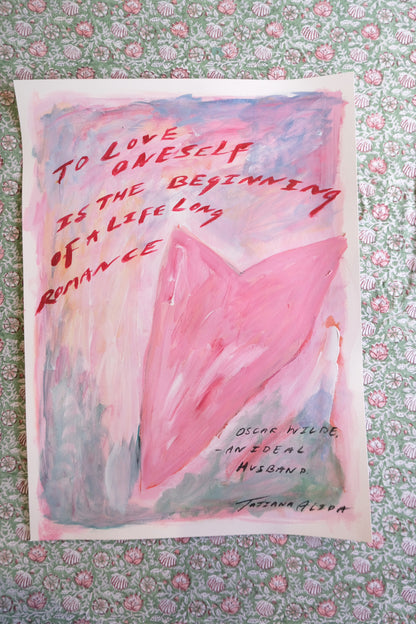 TO LOVE
ONESELF
IS THE BEGINNING
OF A LIFELONG
ROMANCE
OSCAR WILDE,
- AN IDEAL
HUSBAND
TATIANA ALIDA